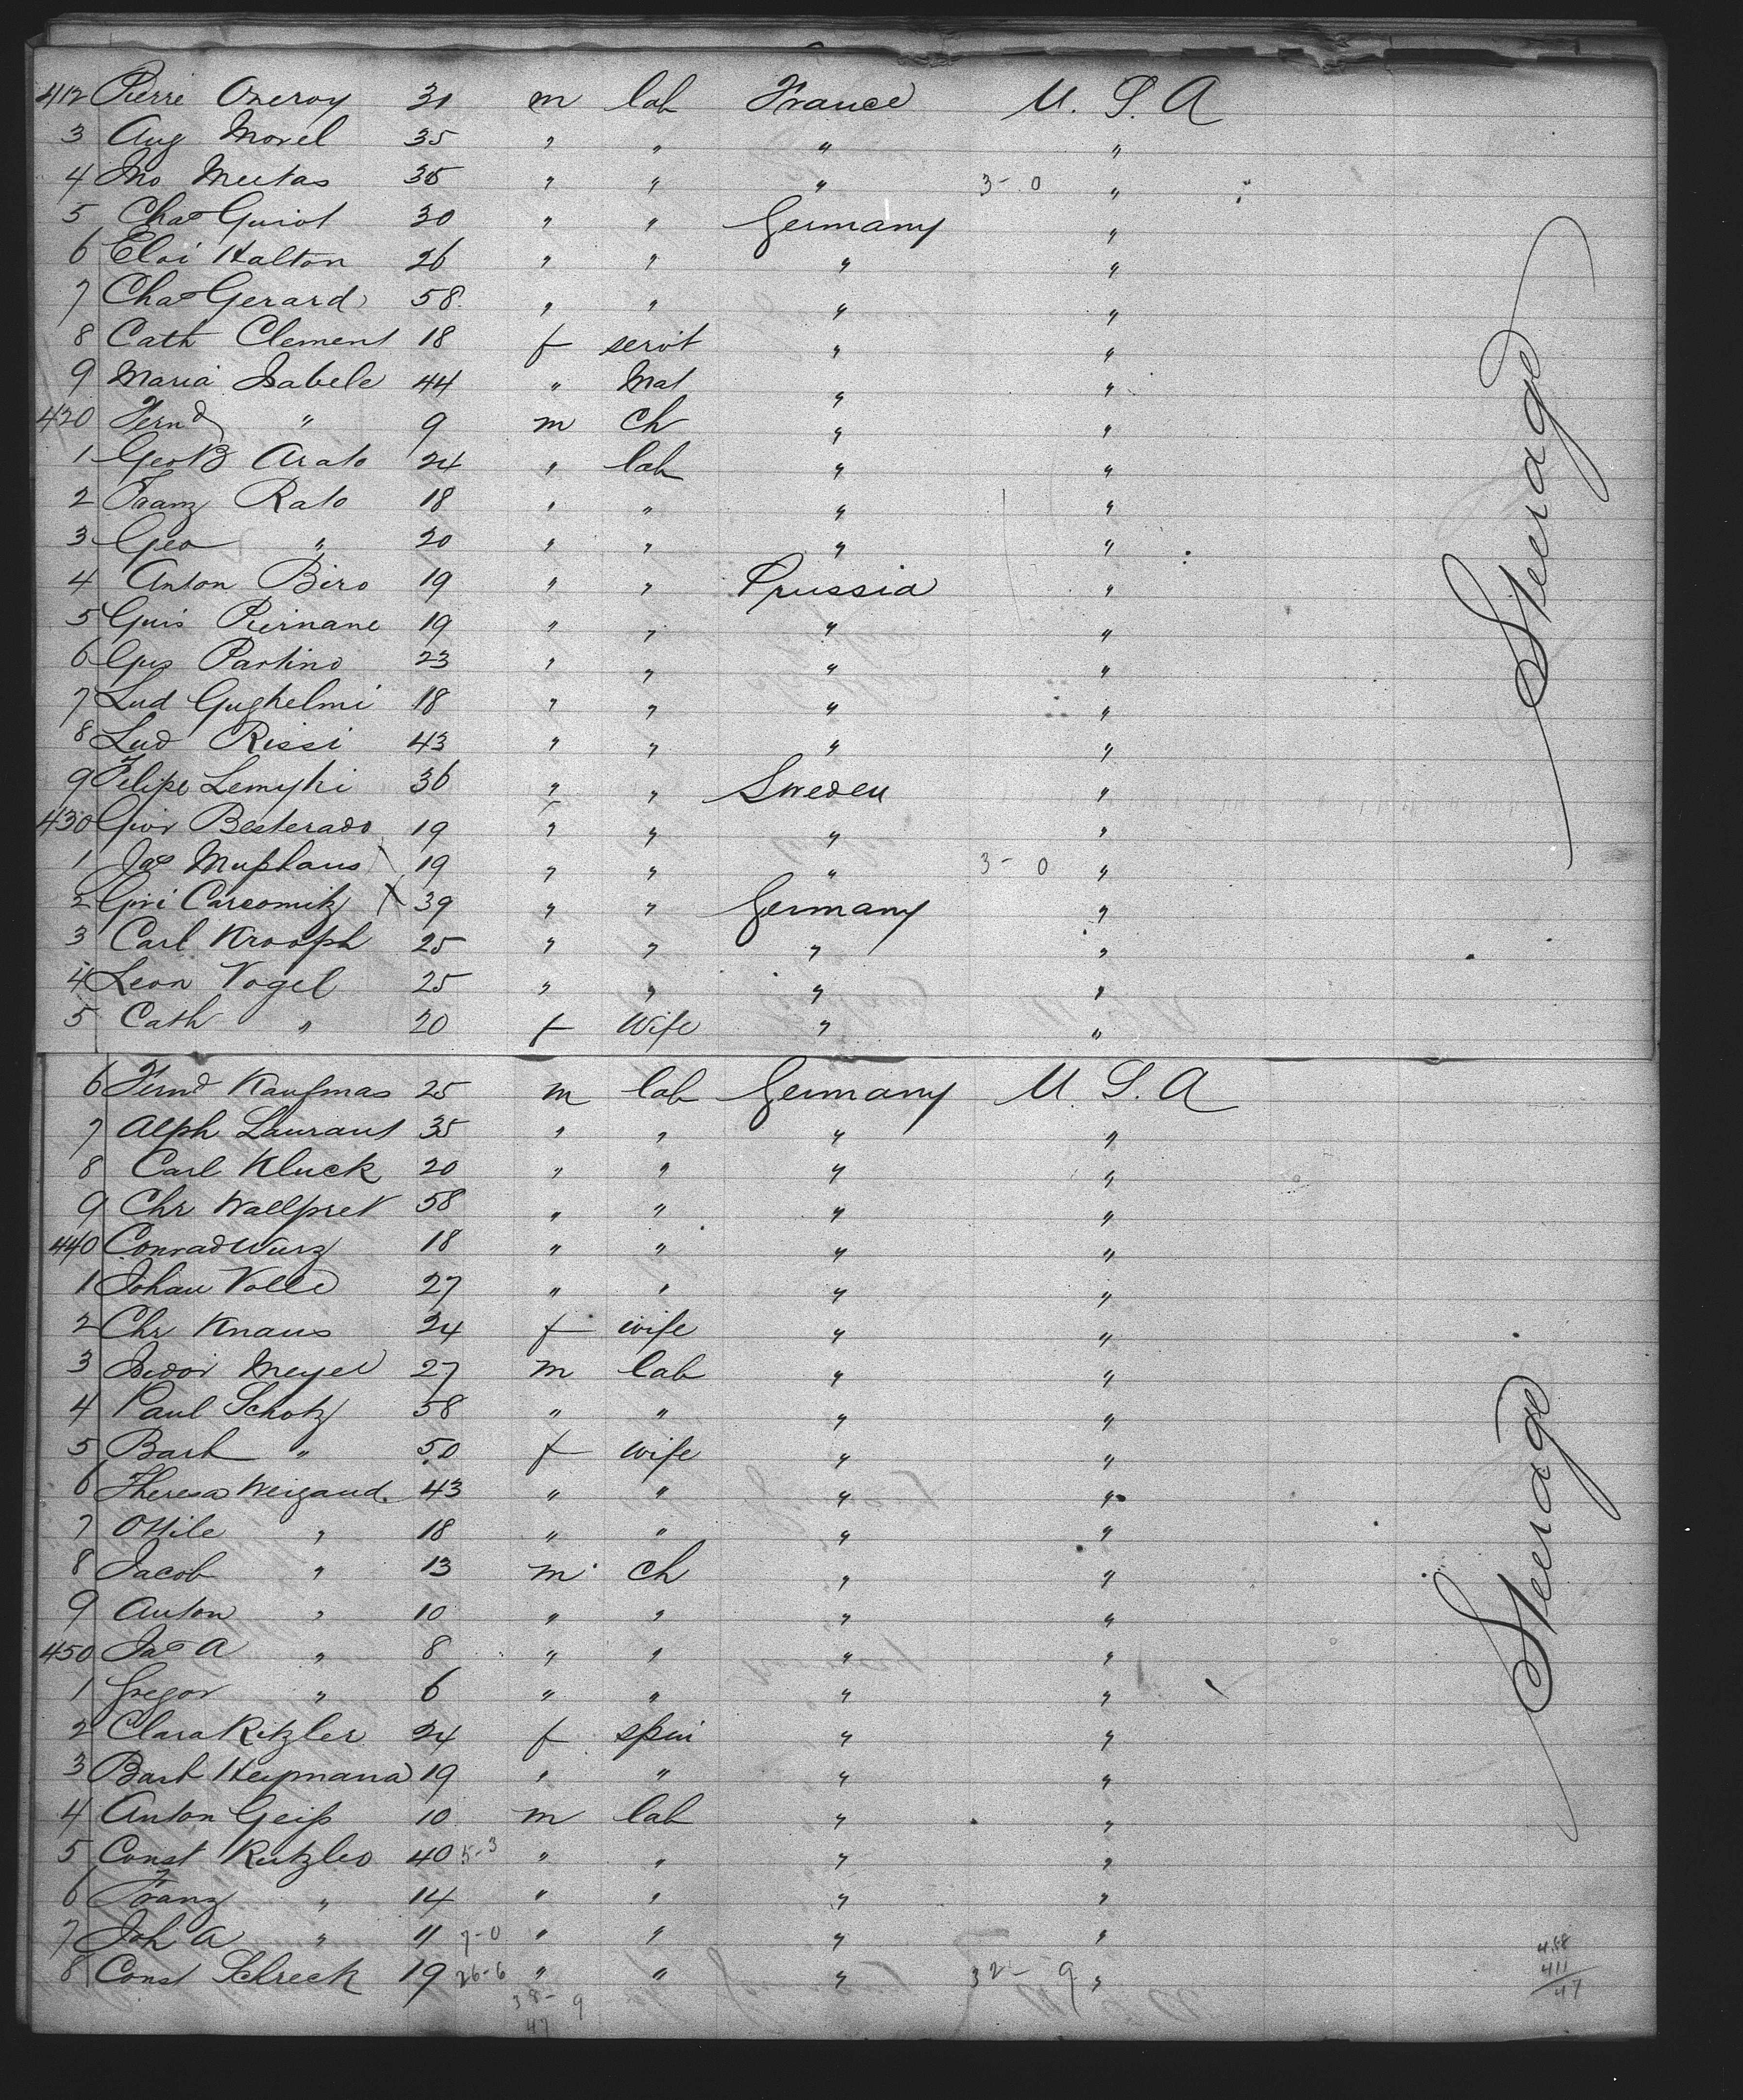 412 Pierre Oneroy 31 m lab France U. S. A
3 Aug Morel 35 " " " "
4 Jno Meetas 35 " " " 3-0 "
5 Chas Guiot 30 " " Germany "
6 Eloi Halton 26 " " " "
7 Chas Gerard 58 " " " "
8 Cath Clement 18 f servt " "
9 Maria Isabele 44 " Mat " "
420 Fernd " 9 m ch " "
1 Geo B Arato 24 " lab " "
2 Franz Rato 18 " " " "
3 Geo " 20 " " " "
4 Anton Biro 19 " " Prussia "
5 Guis Piernane 19 " " " "
6 Gus Partino 23 " " " "
7 Lud Gughelmi 18 " " " "
8 Lud Rissi 43 " " " "
9 Felipe Lemyhi 36 " " Sweden "
430 Giov Besterado 19 " " " "
1 Jas Muphaus 19 " " " 3-0 "
2 Givi Carcomitz X 39 " " Germany "
3 Carl Krooph 25 " " " "
4 Leon Vogel 25 " " " "
5 Cath " 20 f Wife " "
Steerage
6 Fernd Kaufmas 25 m lab Germany U. S. A
7 Alph Laurant 35 " " " "
8 Carl Kluck 20 " " " "
9 Chr Wallpret 58 " " " "
440 Conrad Wurz 18 " " " "
1 Johan Volle 27 " " " "
2 Chr Knaus 24 f wife " "
3 Isidor Meyer 27 m lab " "
4 Paul Schotz 58 " " " "
5 Barb " 50 f wife " "
6 Theresa Weigand 43 " " " "
7 Ottile " 18 " " " "
8 Jacob " 13 m ch " "
9 Anton " 10 " " " "
450 Jas A " 8 " " " "
1 Gregor " 6 " " " "
2 Clara Ritzler 24 f spin " "
3 Barb Heymana 19 " " " "
4 Anton Geiß 10 m lab " "
5 Const Ritzler 40 5-3 " " " "
6 Franz " 14 " " " "
7 Joh A " 11 7-0 " " " "
8 Const Schreck 19 26-6 " " " 32-9 "
38-9
47
Steerage
458
411
47